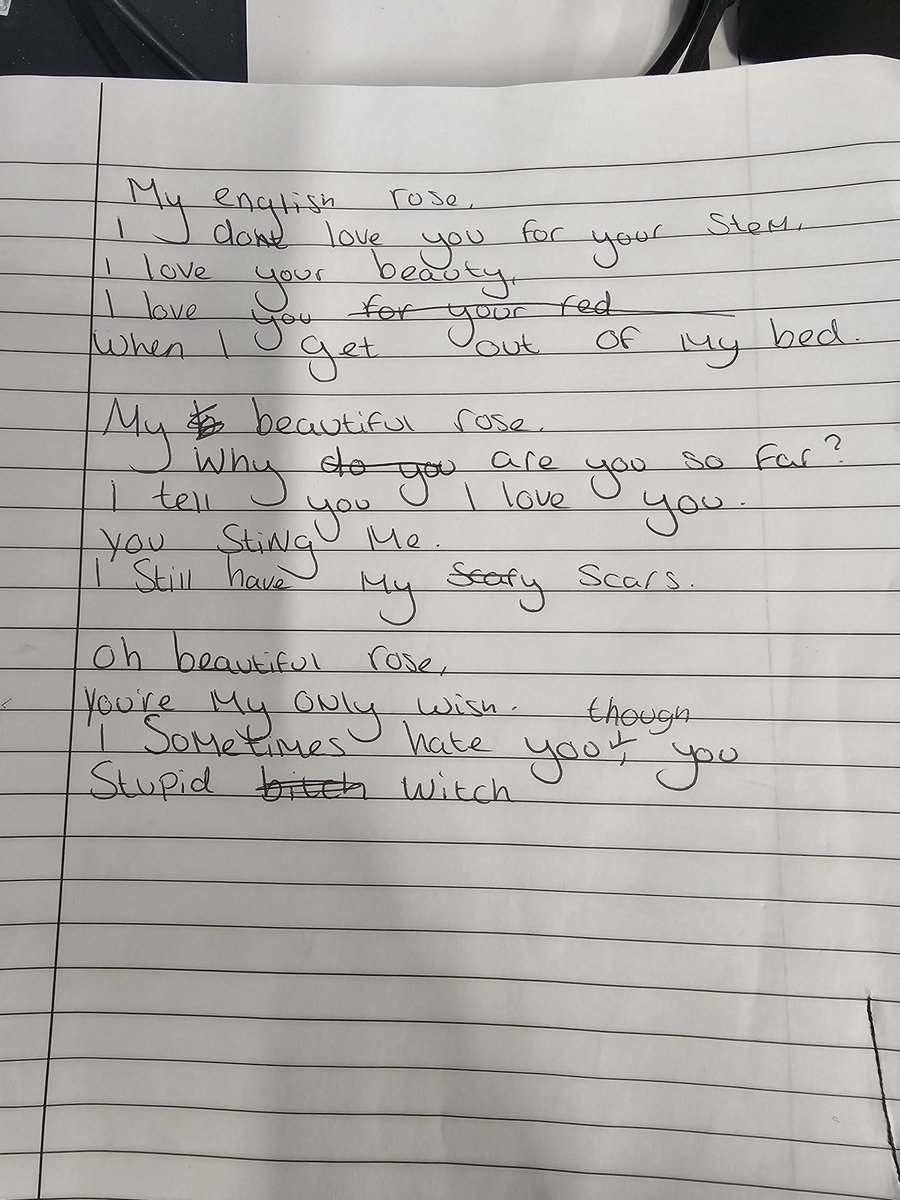 My english rose,
I dont love you for your stem,
I love your beauty,
I love you for your red
When I get out of my bed.
My beautiful rose.
Why do you are you so far?
I tell you I love you.
you sting me.
I still have my scary scars.
Oh beautiful rose,
you're my only wish. though
I sometimes hate you, you
stupid bitch witch